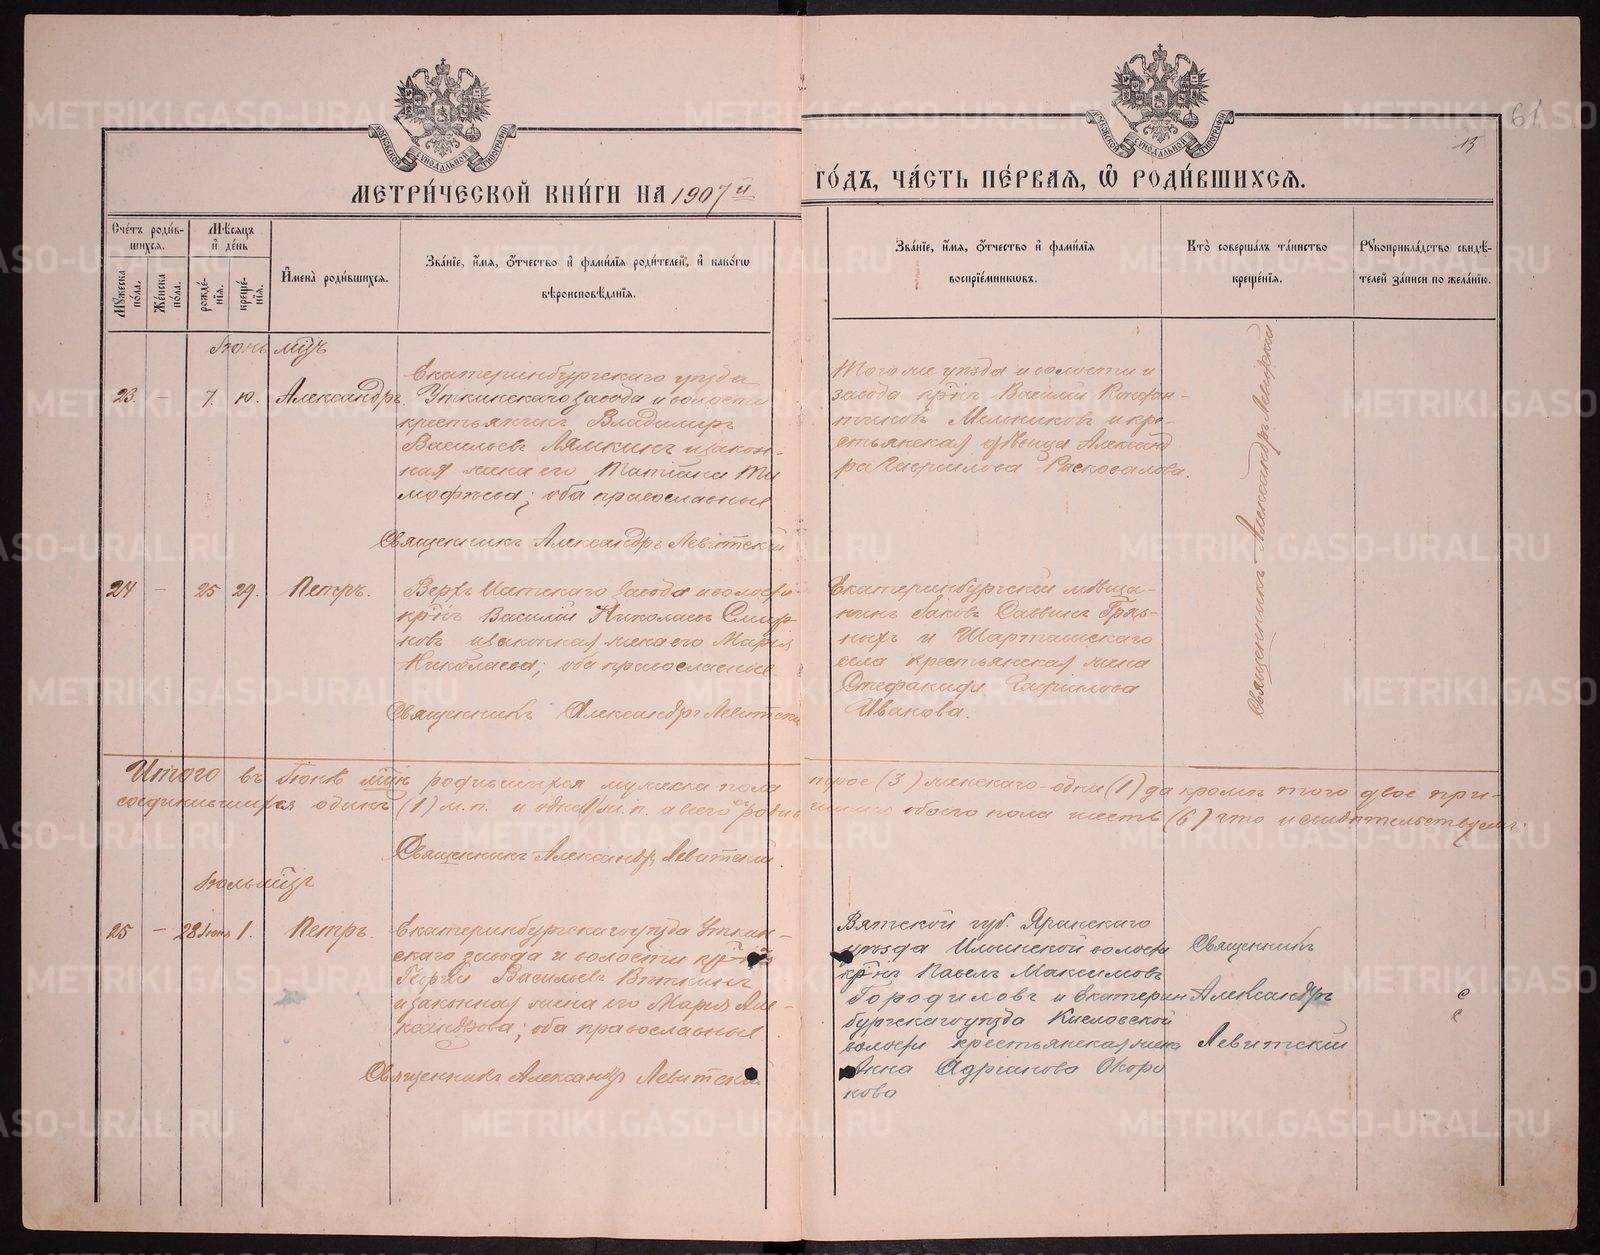 61
15
МОСКОВСКОЙ СѴНОДАЛЬНОЙ ТИПОГРАФІИ
МОСКОВСКОЙ СѴНОДАЛЬНОЙ ТИПОГРАФІИ
МЕТРИ́ЧЕСКОЙ КНИ́ГИ НА 1907й
ГО́ДЪ, ЧА́СТЬ ПЕ́РВАЯ, Ѿ РОДИ́ВШИХСЯ.
Сче́тъ роди́в-
шихся.
Мꙋ́жеска по́ла.
Же́нска по́ла.
Мѣ́сяцъ и де́нь
рожде́-
нїя.
креще́-
нїя.
И҆мена̀ роди́вшихся.
Зва́нїе, и҆́мя, ѻ҆́тчество и҆ фами́лїя роди́телей, и҆ како́гѡ
вѣроисповѣ́данїя.
Зва́нїе, и҆́мя, ѻ҆́тчество и҆ фами́лїя
воспрїе́мникѡвъ.
Кто̀ соверша́лъ та́инство
креще́нїя.
Рꙋкоприкла́дство свидѣ́-
телей за́писи по жела́нїю.
Іюнь мцъ
23. – 7. 10. Александръ.
Екатеринбургскаго уѣзда
Уткинскаго завода и волости
крестьянинъ Владимиръ
Васильевъ Лямкинъ и закон-
ная жена его Татіана Ти
мофѣева; оба православные
Священникъ Александръ Левитскій
Того же уѣзда и волости и
завода кр–нъ Василій Ксенофон-
тиковъ Мельниковъ и кре-
стьянская дѣвица Александ
ра Гавриилова Расковалова.
Священникъ Александръ Левитскій
24 – 25 29. Петръ.
Верхъ Исетскаго завода и волости
кр–нъ Василій Николаевъ Смир-
новъ и законная жена его Марія
Николаева; оба православные
Священникъ Александръ Левитскій
Екатеринбургскій мѣща-
нинъ Іаковъ Саввинъ Гряз-
ныхъ и Шарташскаго
села крестьянская жена
Стефанида Гавриилова
Иванова.
Итого въ Іюнѣ мцѣ родившихся мужеска пола трое (3) женскаго–одна (1) да кромѣ того двое при-
соединившихся одинъ (1) м.п. и одна (1) ж.п. а всего обоего пола шесть (6) что и свидѣтельствуемъ.
Священникъ Александръ Левитскій.
Іюль мцъ
25 – 28 Іюня 1. Петръ.
Екатеринбургскаго уѣзда Уткин-
скаго завода и волости кр–нъ
Георгій Васильевъ Вяткинъ
и законная жена его Марія Але-
ксандрова; оба православные
Священникъ Александръ Левитскій
Вятской губ. Яранскаго
уѣзда Ильинской волости
кр–нъ Павелъ Максимовъ
Городиловъ и Екатерин
бургскаго уѣзда Кисловской
волости крестьянская жена
Анна Адріанова Окоро
кова
Священникъ
Александръ
Левитскій